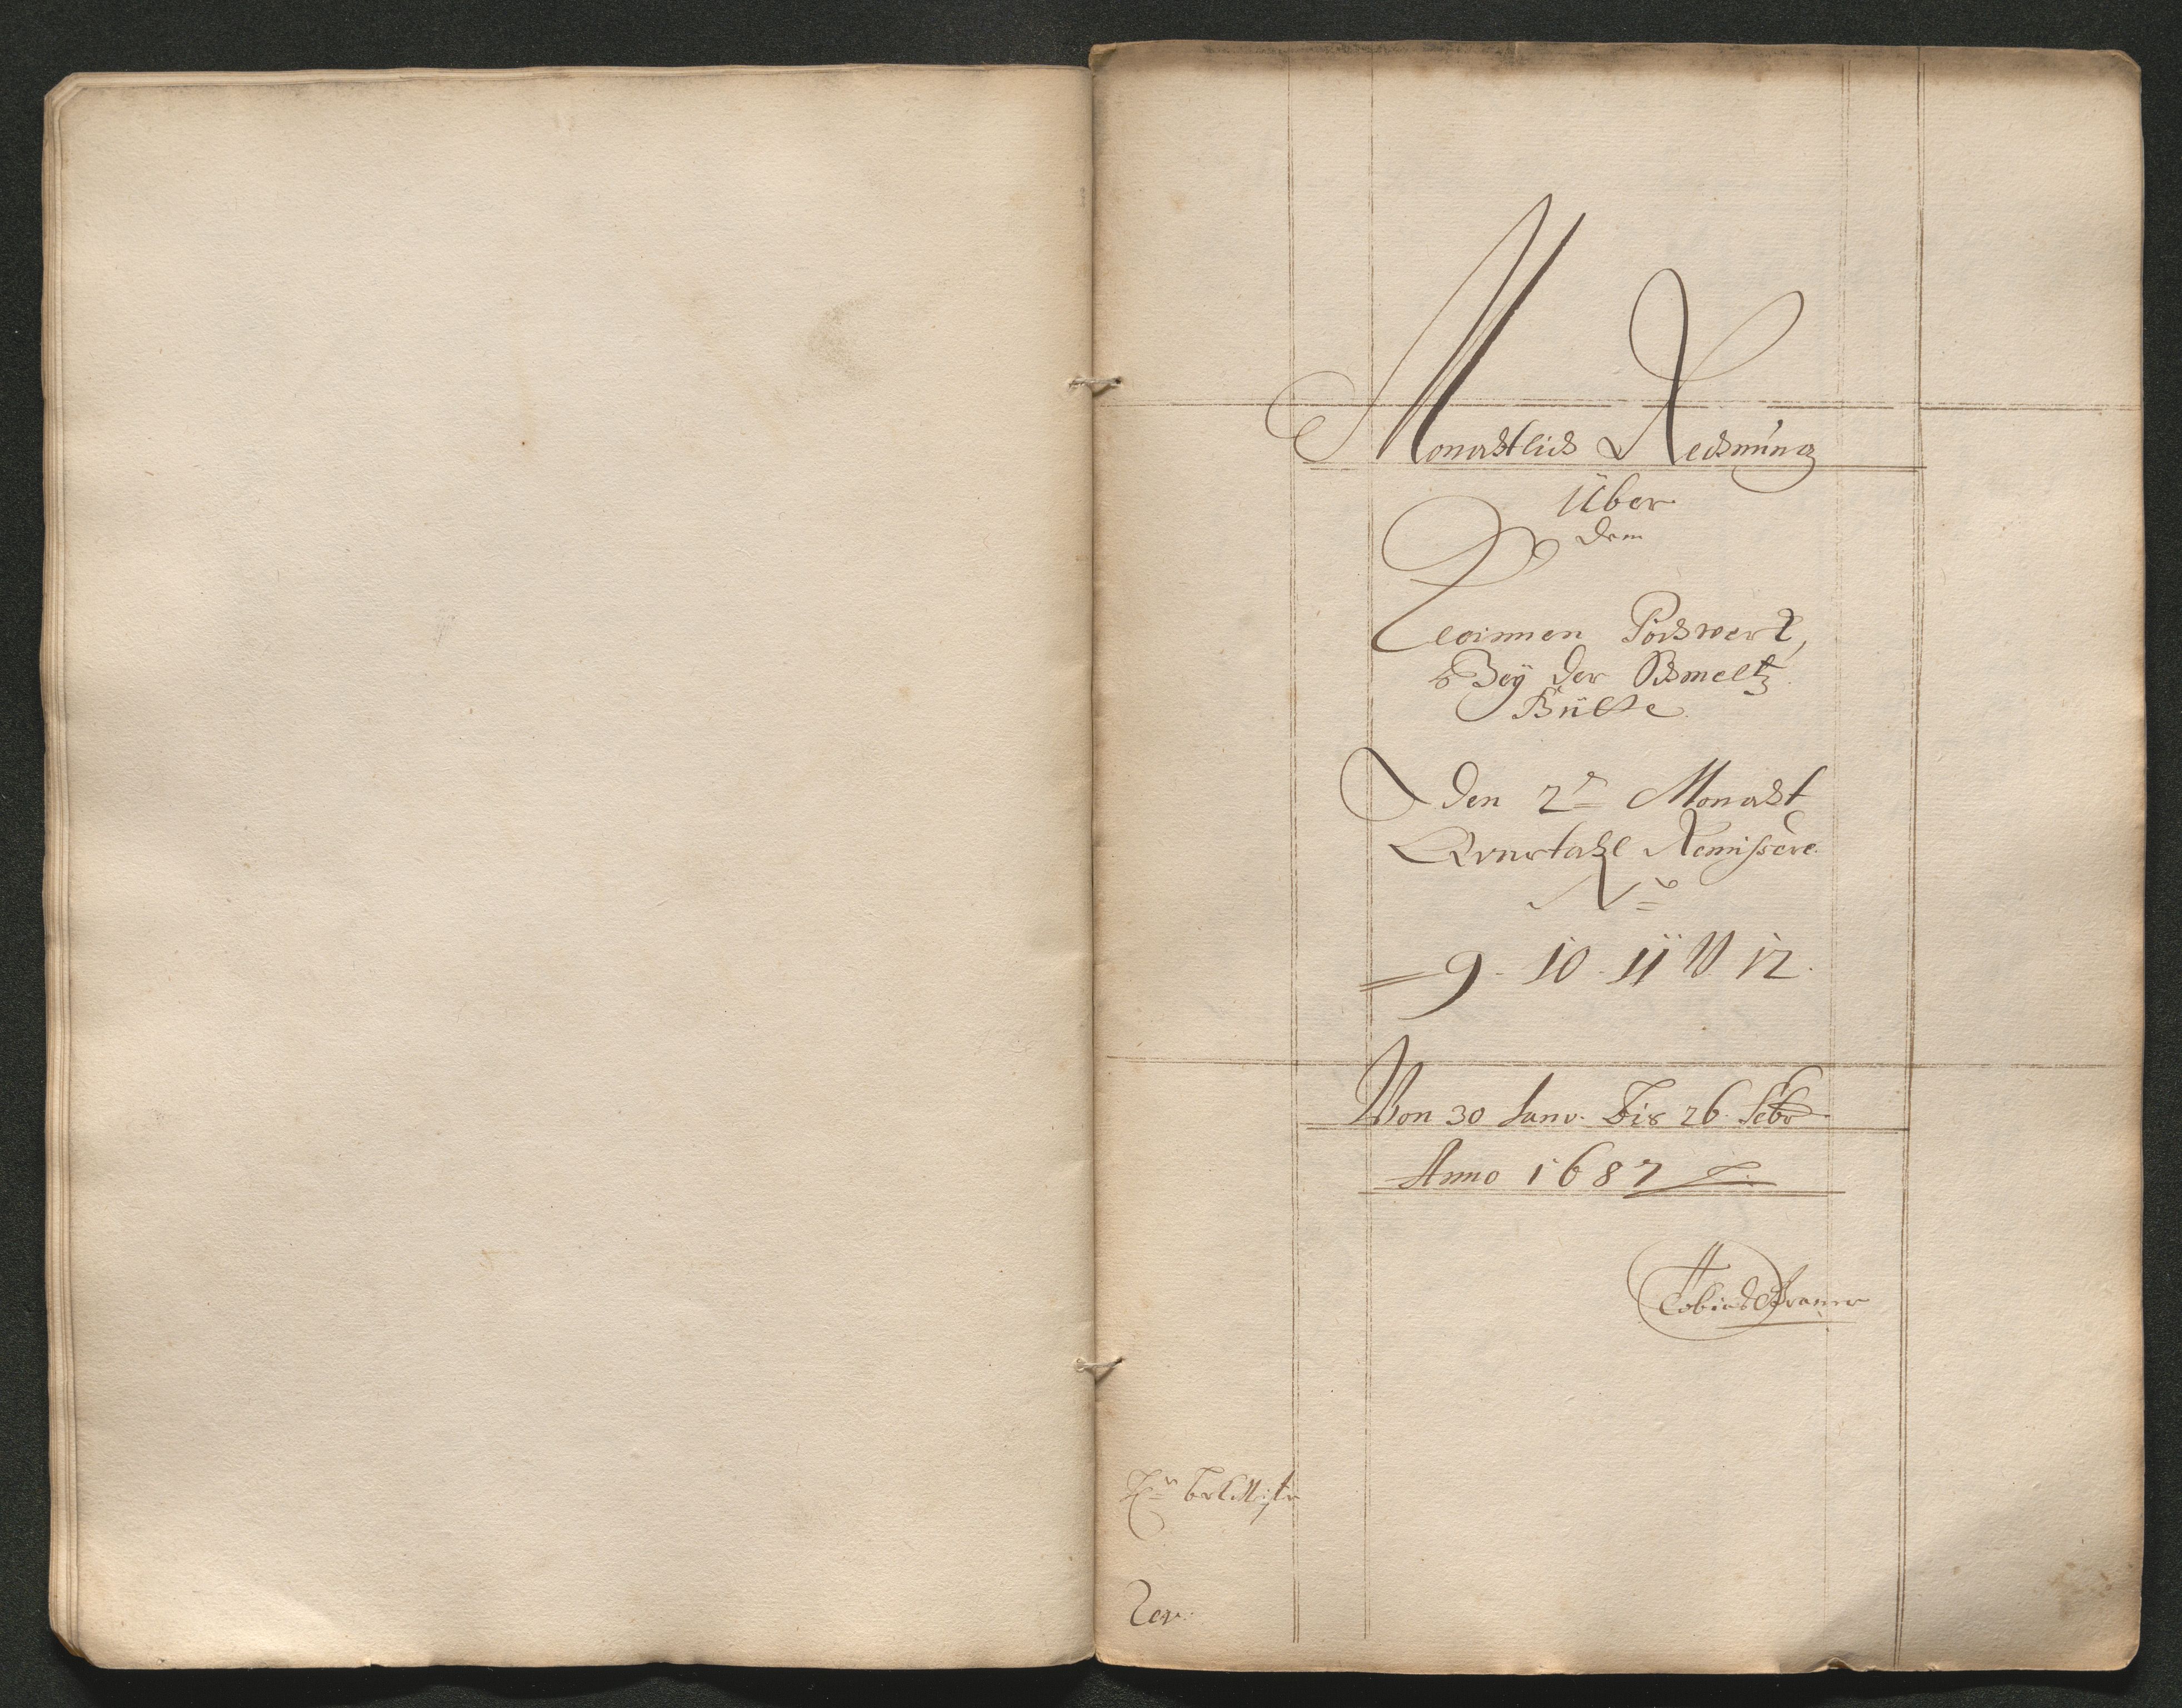 Monahtlich Rechnung
Über
dem
Kleinnen Pochwerk,
Bey der Schmeltz
Hütte.
Den 2r Monaht
Qvartahl Remissere.
No
9. 10. 11 U 12.
Von 30 Janv. Bis 26. Febr
Anno 1687
Tobias
Rev: